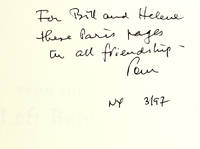 For Bill and Helene
these Paris pages
in all friendship -
NY 3/97